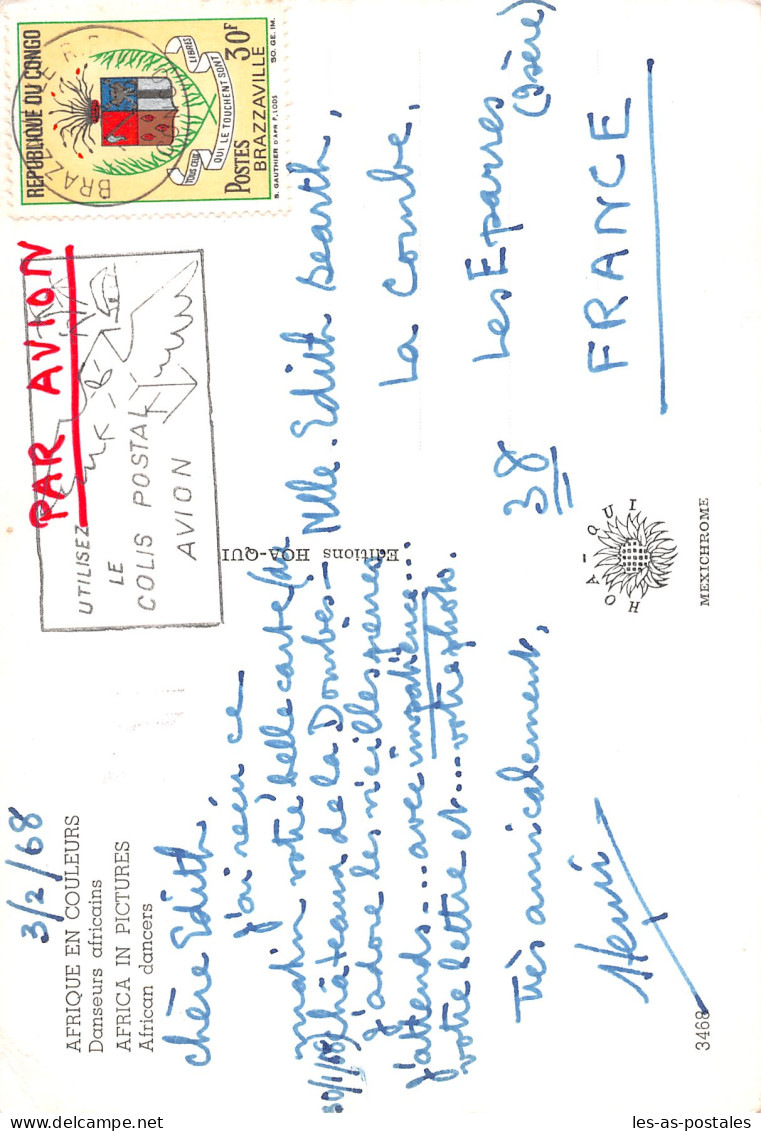 3/2/68
AFRIQUE EN COULEURS
Danseurs africains
AFRICA IN PICTURES
African dancers
chère Edith,
j'ai reçu ce
matin votre belle carte (du
30/1/68) châteaux de la Dombes—
J'adore les vieilles pierres
J'attends... avec impatience...
votre lettre et... votre photo.
Très amicalement,
Henri
3468
Editions HOA-QUI
REPUBLIQUE DU CONGO
TOUS CEUX
QUI LE TOUCHENT SONT
LIBRES
POSTES 30F
BRAZZAVILLE
S. GAUTHIER D'APR P. LODS SO. GE. IM.
BRAZZAVILLE
PAR AVION
UTILISEZ
LE
COLIS POSTAL
AVION
Melle. Edith
La Combe,
Les Eparres
38 (Isère)
FRANCE
HOA-QUI
MEXICHROME
les-as-postales